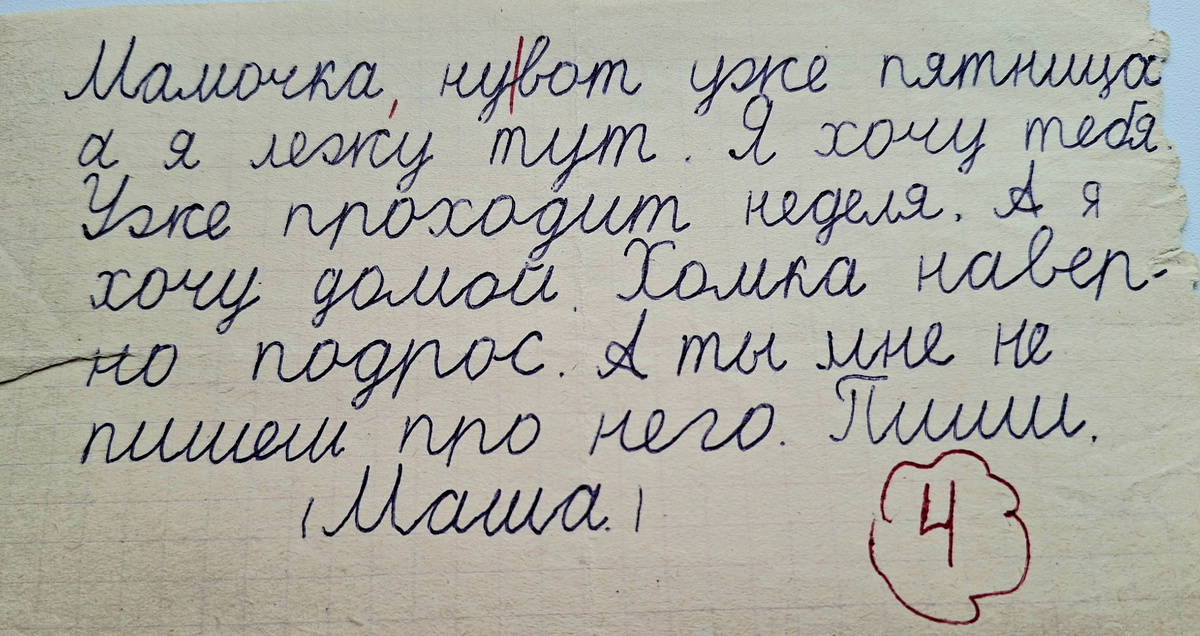 Мамочка, нувот уже пятница
а я лежу тут. Я хочу тебя.
Уже проходит неделя. А я
хочу домой. Хомка навер-
но подрос. А ты мне не
пишеш про него. Пиши.
(Маша.)
4